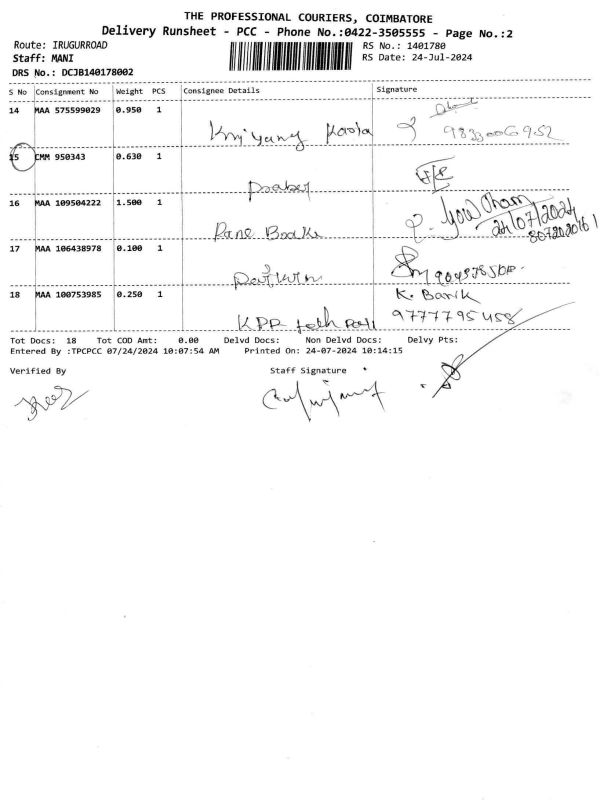 THE PROFESSIONAL COURIERS, COIMBATORE
Delivery Runsheet - PCC - Phone No.:0422-3505555 - Page No.:2
Route: IRUGURROAD RS No.: 1401780
Staff: MANI RS Date: 24-Jul-2024
DRS No.: DCJB140178002
S No Consignment No Weight PCS Consignee Details Signature
14 MAA 575599029 0.950 1
9833006952
15 CMM 950343 0.630 1
16 MAA 109504222 1.500 1
24/07/2024
17 MAA 106438978 0.100 1
18 MAA 100753985 0.250 1 K. Bank
KPR
Tot Docs: 18 Tot COD Amt: 0.00 Delvd Docs: Non Delvd Docs: Delvy Pts:
Entered By :TPCPCC 07/24/2024 10:07:54 AM Printed On: 24-07-2024 10:14:15
Verified By Staff Signature